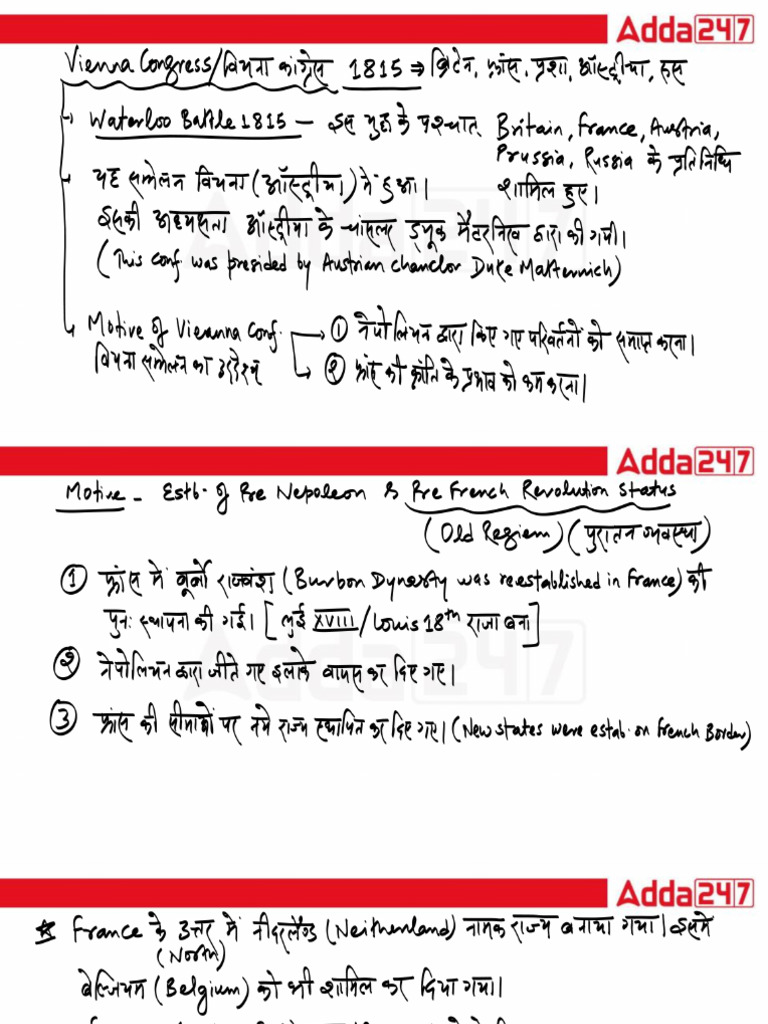 Adda247
Vienna Congress/वियना कांग्रेस 1815 ⇒ ब्रिटेन, फ्रांस, प्रशा, ऑस्ट्रीया, रूस
Waterloo Battle 1815 — इस युद्ध के पश्चात् Britain, France, Austria,
Prussia, Russia के प्रतिनिधि
शामिल हुए।
यह सम्मेलन वियना (ऑस्ट्रीया) में हुआ।
इसकी अध्यक्षता ऑस्ट्रीया के चांसलर ड्यूक मैटरनिख द्वारा की गयी।
(This conf was presided by Austrian chanclor Duke Matternich)
Motive of Vieanna Conf.
वियना सम्मेलन का उद्देश्य
① नेपोलियन द्वारा किए गए परिवर्तनों को समाप्त करना।
② फ्रांस की क्रांति के प्रभाव को कम करना।
Adda247
Motive - Estb. of Pre Nepoleon & Pre French Revolution Status
(Old Regiem) (पुरातन व्यवस्था)
① फ्रांस में बूर्बो राजवंश (Burbon Dynesty was reestablished in France) की
पुनः स्थापना की गई। [लुई XVIII/Louis 18th राजा बना]
② नेपोलियन द्वारा जीते गए इलाके वापस कर दिए गए।
③ फ्रांस की सीमाओं पर नये राज्य स्थापित कर दिए गए। (New states were estab. on French Border)
Adda247
☆ France के उत्तर में नीदरलैण्ड (Neitherland) नामक राज्य बनाया गया। इसमे
(North)
बेल्जियम (Belgium) को भी शामिल कर दिया गया।